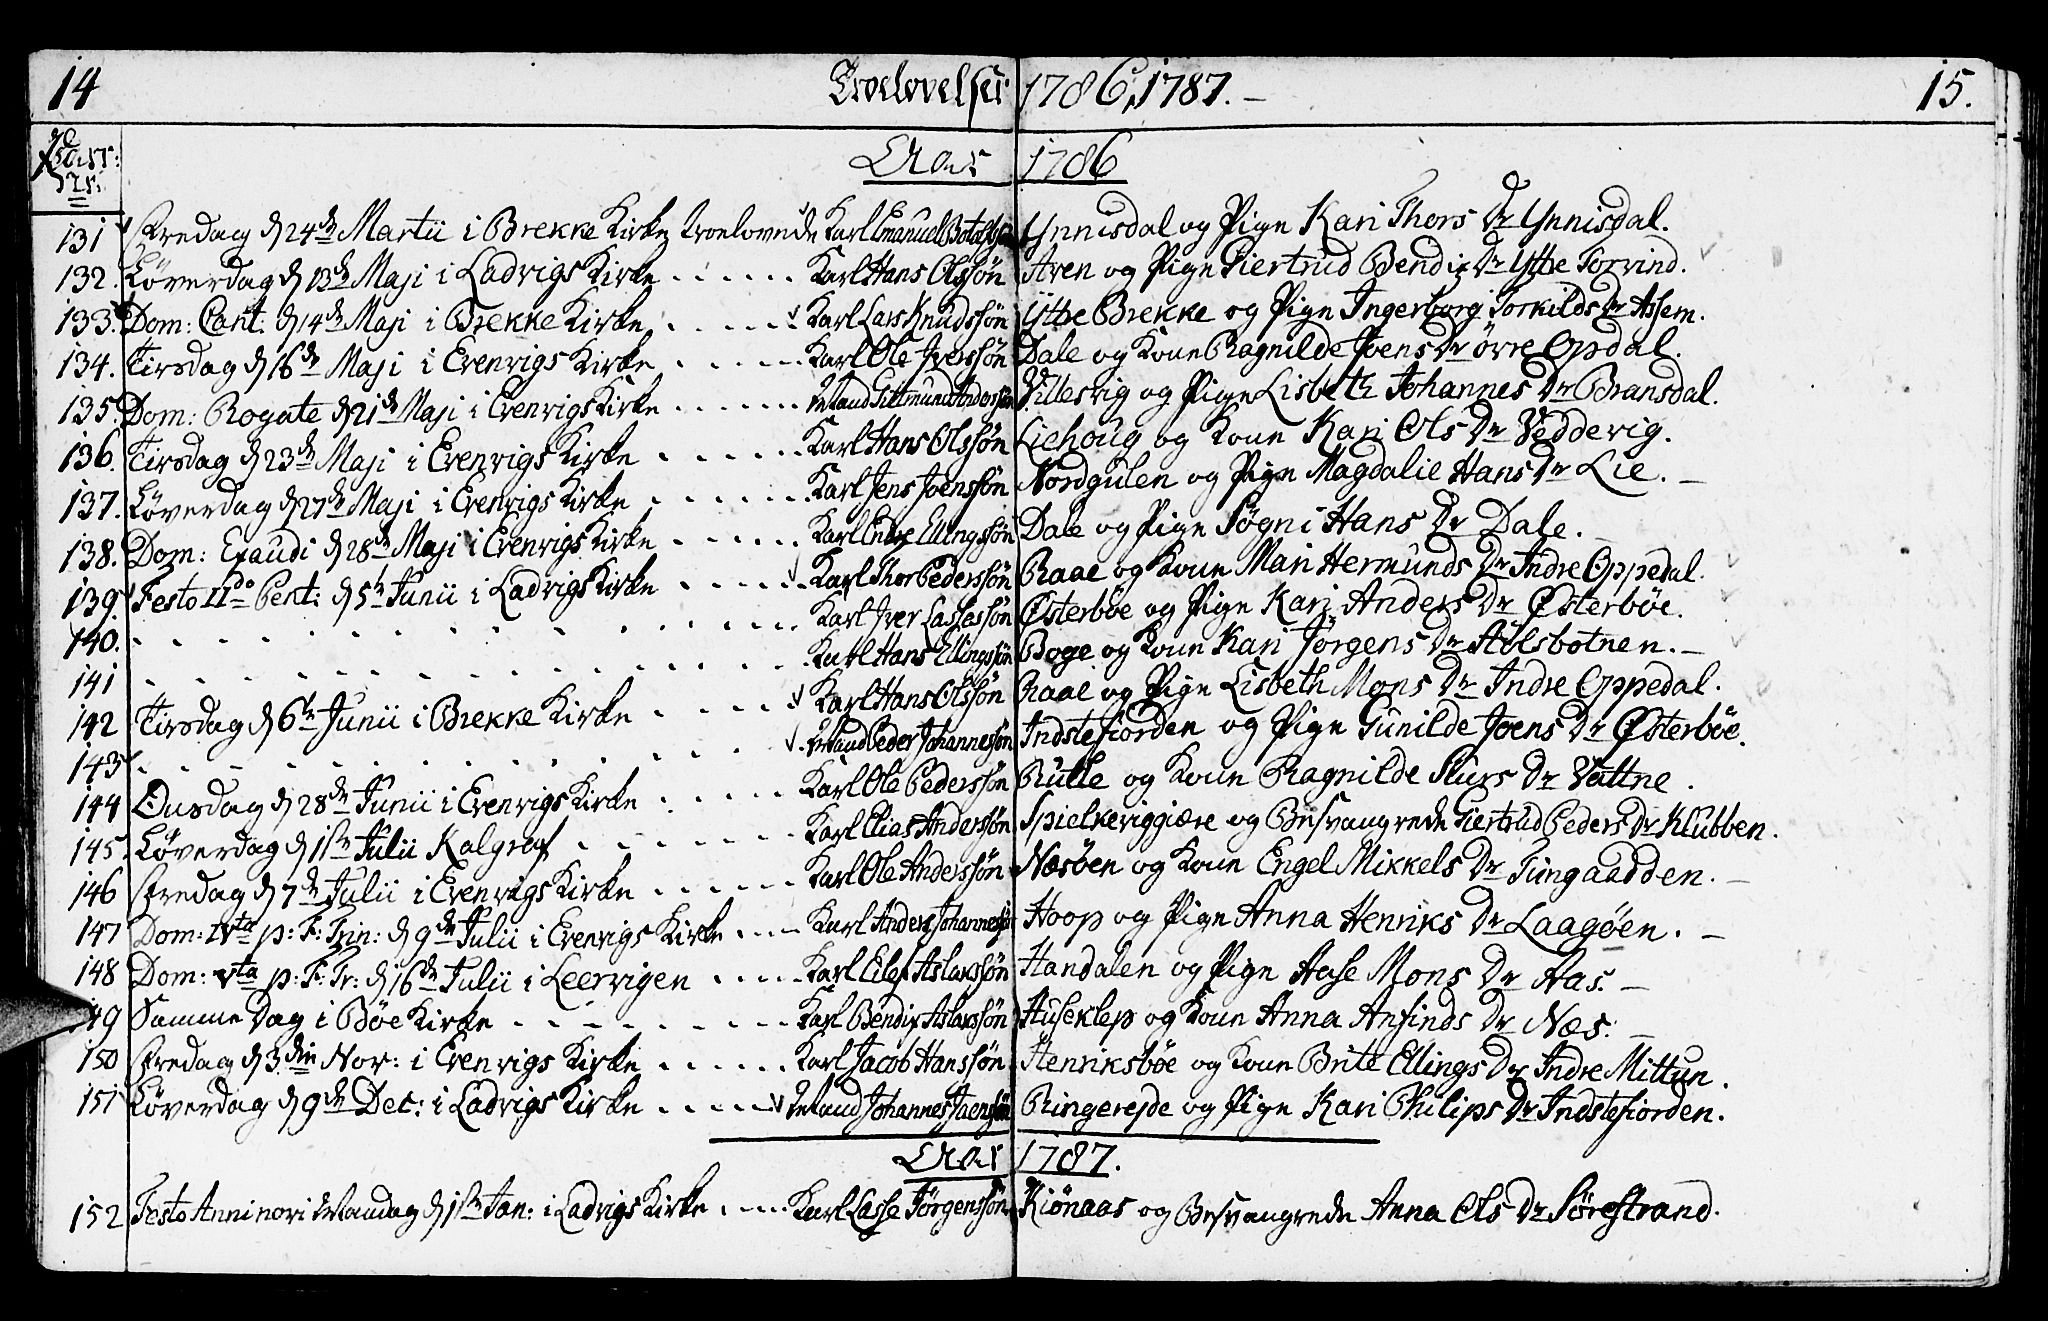 14 Troelovelser 1786, 1787. 15.
Parr: Nr:
Aar 1786
131 Fredag d 24de Martii i Brekke Kirke troelovede Karl Emanuel Botolfsøn Ynnisdal og Pige Kari Thors Dr Ynnisdal.
132. Løverdag d 13de Maji i Ladvigs Kirke Karl Hans Olssøn Aven og Pige Giertrud Bendix Dr Ytte Torvind.
133. Dom: Cant: d 14de Maji i Brekke Kirke Karl Lars Knudssøn Ytte Brekke og Pige Ingerborg Torkilds Dr Assem.
134. Tirsdag d 16de Maji i Evenvigs Kirke Karl Ole Iverssøn Dale og Kone Ragnilde Joens Dr øvre Opdal.
135. Dom: Rogate d 21de Maji i Evenvigs Kirke Mand Gittmund Anderssøn Villesvig og Pige Lisbeth Johannes Dr Bransdal.
136. Tirsdag d 23de Maji i Evenvigs Kirke Karl Hans Olssøn Liehoug og Kone Kari Ols Dr Vedderig.
137. Løverdag d 27de Maji i Evenvigs Kirke Karl Jens Joenssøn Nordgulen og Pige Magdalie Hans Dr Lie.
138. Dom: Exaudi d 28de Maji i Evenvigs Kirke Karl Endre Ellingssøn Dale og Pige Søgni Hans Dr Dale.
139 Festo IIdo Pent: d 5te Junii i Ladvigs Kirke Karl Thor Pederssøn Raae og Kone Mari Hermunds Dr Indre Oppedal.
140. Karl Iver Lassessøn Østerbøe og Pige Kari Anders Dr Østerbøe.
141 Karl Hans Ellingssøn Boge og Kone Kari Jørgens Dr Aolsbotnen.
142 Tirsdag d 6te Junii i Brekke Kirke Karl Hans Olssøn Raae og Pige Lisbeth Mons Dr Indre Oppedal.
143 Mand Peder Johannessøn Indstefiorden og Pige Gunilde Joens Dr Østerbøe.
144 Onsdag d 28de Junii i Evenvigs Kirke Karl Ole Pederssøn Rutle og Kone Ragnilde Siurs Dr Vattne.
145. Løverdag d 1ste Julii Kalgraf Karl Elias Anderssøn Spielkeviggiære og Besvangrede Giertrud Peders Dr Klubben.
146 Fredag d 7de Julii i Evenvigs Kirke Karl Ole Anderssøn Næsøen og Kone Engel Mikkels Dr Tungaadden.
147 Dom: IVta p: F: Trin: d 9de Julii i Evenvigs Kirke Karl Anders Johannessøn Hoop og Pige Anna Henriks Dr Laagøen.
148 Dom: Vta p: F: Tr: d 16de Julii i Leervigen Karl Eilef Aslakssøn Handalen og Pige Aase Mons Dr Aas.
149 Samme Dag i Bøe Kirke Karl Bendix Aslakssøn Huseklep og Kone Anna Anfinds Dr Næs.
150 Fredag d 3die Nov: i Evenvigs Kirke Karl Jacob Hanssøn Henriksbøe og Kone Brite Ellings Dr Indre Mittun.
151 Løverdag d 9de Dec: i Ladvigs Kirke Mand Johannes Jaenssøn Ringerejde og Pige Kari Philips Dr Indstefiorden.
Aar 1787.
152 Festo Anni novi Mandag d 1ste Jan: i Ladvigs Kirke Karl Lasse Jørgenssøn Kiønaas og Besvangrede Anna Ols Dr Sørestrand.